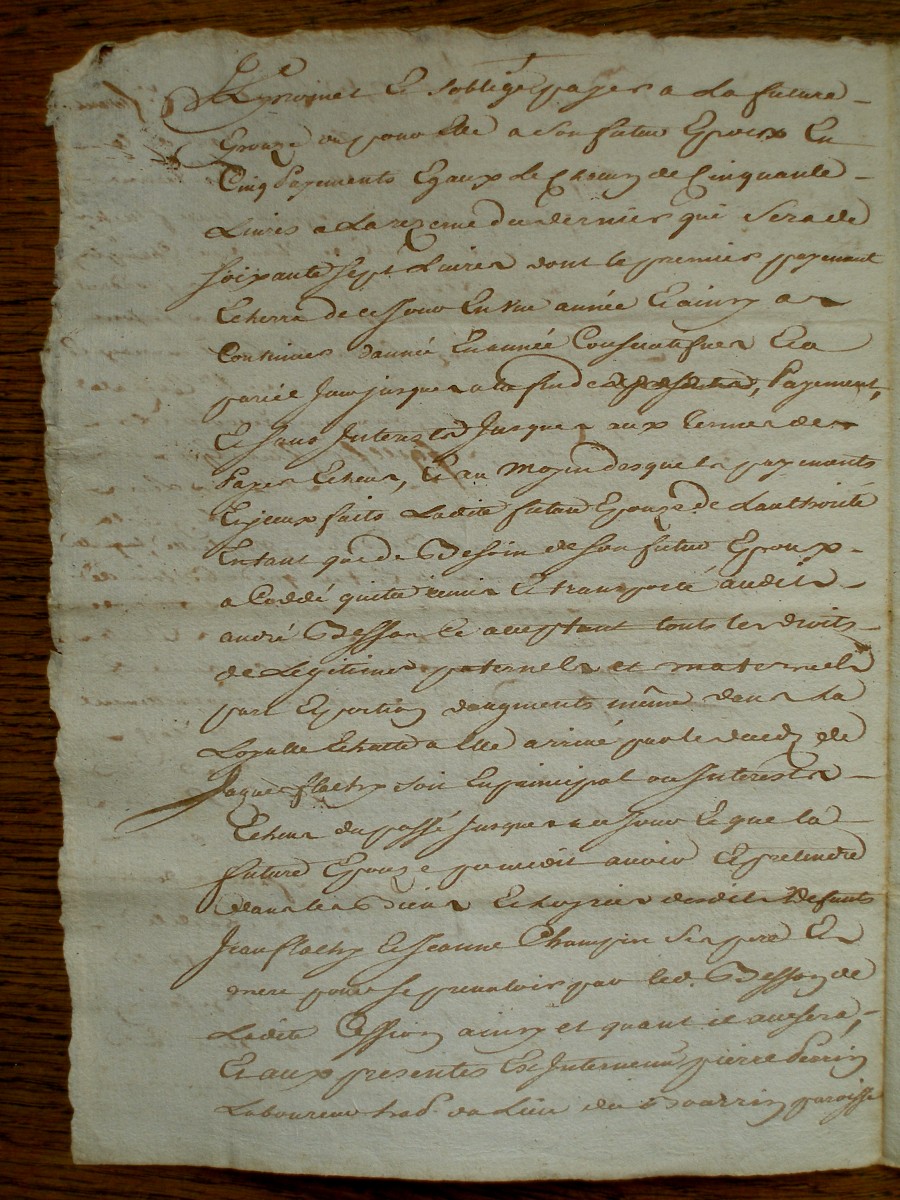 Il promet Et soblige payer a La future
Epouze ou pour Elle a Son futur Epoux En
Cinq Payements Egaux Le Chacun de Cinquante
Livres a La rezerve du dernier qui Sera de
Soixante Sept Livres dont le premier payement
Echerra de ce Jour En une année Et ainsy a
Continuer dannée En année Consecutifves Et a
pareil Jour jusques a la fin de Payement,
Et sans Interests Jusques aux termes des
Payes Echeus, Et au Moyen desquels payements
Et jeux faits Ladite future Epouze de Lauthorité
Entant que de Besoin de Son futur Epoux
a Ceddé quitté remis Et transporté audit
andré Besson Ce acceptant touts les droits
de Legitimes paternels et maternels
part Et portion daugments même dans La
Loyalle Echutte a Elle arrivé par le deceds de
Jaques flachy soit En principal ou Interests
Echeus du passé Jusques a ce Jour Et que la
future Epouze pourroit avoir Et pretendre
dans les Biens Et hoyries desdits deffunts
Jean flachy Et Jeanne Champin Ses pere Et
mere pour Se prevaloir par led. Besson de
Ladite Cession ainsy et quant il avisera,
Et aux presentes Est Intervenu pierre Perrin
Laboureur hab. du Lieu du Bourrin paroisse